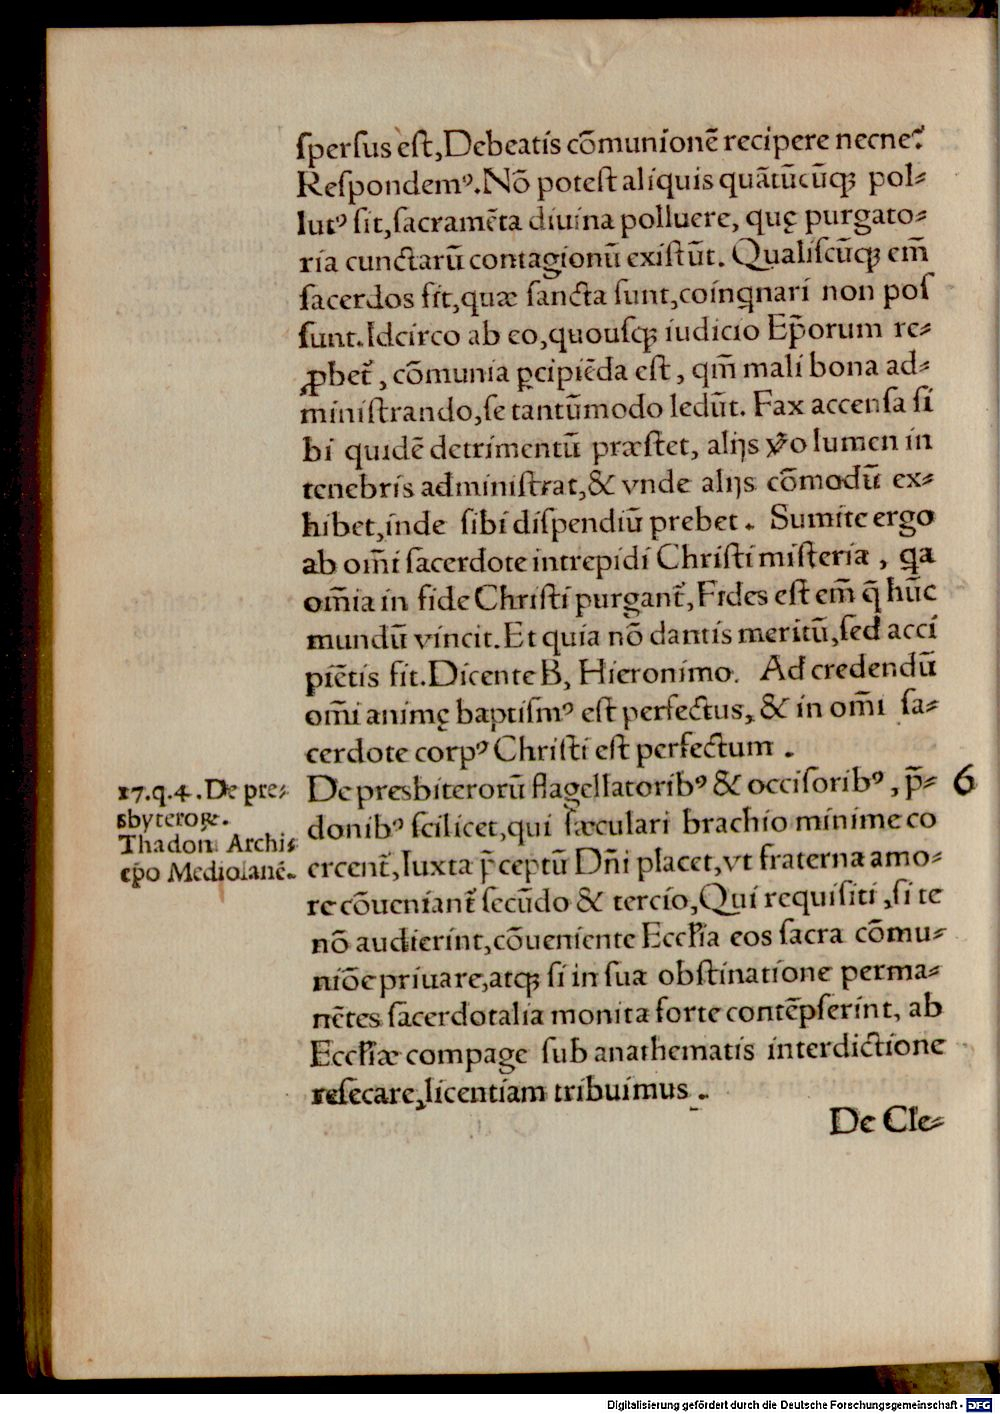 ſperſus eſt,Debeatis cōmunionē recipere necne?
Reſpondemꝰ.Nō poteſt aliquis quātūcūqꝫ pol⸗
lutꝰ ſit,ſacramēta diuina polluere, quę purgato⸗
ria cunctarū contagionū exiſtūt. Qualiſcūqꝫ em̄
ſacerdos ſit,quæ ſancta ſunt,coinqnari non poſ
ſunt.Idcirco ab eo,quouſqꝫ iudicio Ep̄orum re⸗
ꝓbet̄, cōmunia ꝑcipiēda eſt, qm̄ mali bona ad⸗
miniſtrando,ſe tantūmodo ledūt. Fax accenſa ſi
bi quidē detrimentū præſtet, alijs v̄o lumen in
tenebris adminiſtrat,& vnde alijs cōmodū ex⸗
hibet,inde ſibi diſpendiū prebet. Sumite ergo
ab om̄i ſacerdote intrepidi Chriſti miſteria, qa
om̄ia in fide Chriſti purgant̄,Fides eſt em̄ q̄ hūc
mundū vincit.Et quia nō dantis meritū,ſed acci
piētis fit.Dicente B, Hieronimo. Ad credendū
om̄i animę baptiſmꝰ eſt perfectus, & in om̄i ſa⸗
cerdote corpꝰ Chriſti eſt perfectum.
17.q.4.De pre⸗
sbyteroꝝ.
Thadon Archi⸗
ep̄o Mediolanē.
De presbiterorū flagellatoribꝰ & occiſoribꝰ, p̄⸗ 6
donibꝰ ſcilicet,qui ſæculari brachio minime co
ercent̄,Iuxta p̄ceptū Dn̄i placet,vt fraterna amo⸗
re cōueniant̄ ſecūdo & tercio,Qui requiſiti,ſi te
nō audierint,cōueniente Eccl̄ia eos ſacra cōmu⸗
niōe priuare,atqꝫ ſi in ſua obſtinatione perma⸗
nētes ſacerdotalia monita forte contēpſerint, ab
Eccl̄iæ compage ſub anathematis interdictione
reſecare,licentiam tribuimus.
De Cle⸗
Digitalisierung gefördert durch die Deutsche Forschungsgemeinschaft - DFG